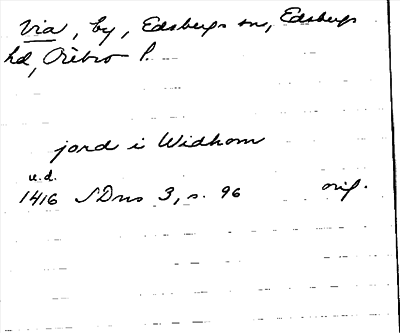 Via, by, Edsbergs sn, Edsbergs
hd, Örebro l.
jord i Widhom
u.d.
1416 SDns 3, s. 96 orig.